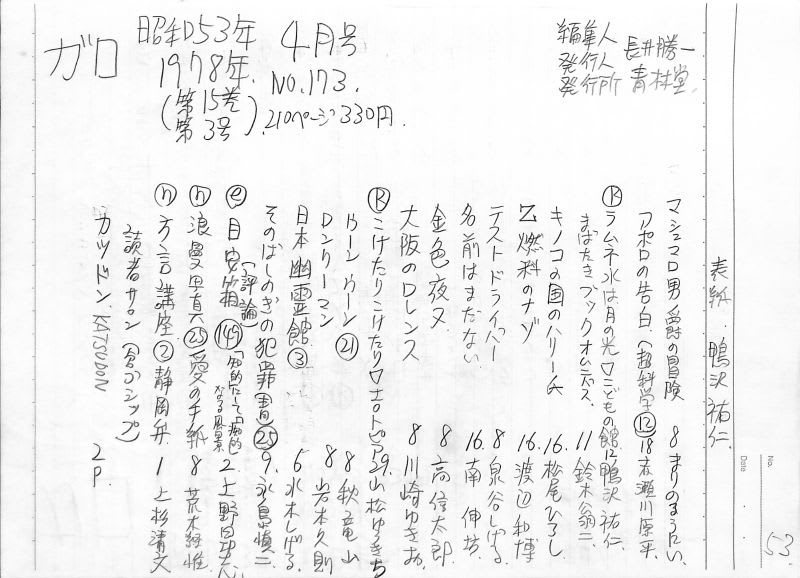 ガロ
昭和53年
1978年
(第15巻
第3号)
4月号
NO.173.
210ページ 330円.
編集人
発行人 長井勝一
発行所 青林堂.
表紙. 鴨沢祐仁.
マシュマロ男爵の冒険 8 まりのるうにい.
アポロの告白.(超科学⑫) 18 赤瀬川原平.
Ⓡラムネ水は月の光ロこどもの館 12 鴨沢祐仁
まばたきブックオムニバス. 11 鈴木翁二
キノコの国のハリー氏 16. 松尾ひろし
乙燃料のナゾ 16. 渡辺和博
テストドライバー 8 泉谷しげる
名前はまだない 16. 南伸坊.
金色夜叉 8 高信太郎.
大阪のロレンス 8 川崎ゆきお.
Ⓡこけたりこけたりロエロトピア 29. 山松ゆうきち
カーンカーン㉑ 8 秋竜山
ロンリーマン 8 岩本久則
日本幽霊館③ 6 水木しげる
そのばしのぎの犯罪(評論)㉕ 9. 永島慎二
ⓔ目安箱(149)「知的にして「病的」なる風景 2 上野昂志
ⓝ浪曼写真㉕愛の手紙 8 荒木経惟
ⓝ方言講座②静岡弁 1 上杉清文
読者サロン(ゴシップ)
カツドン. KATSUDON 2P.
No.
Date
53